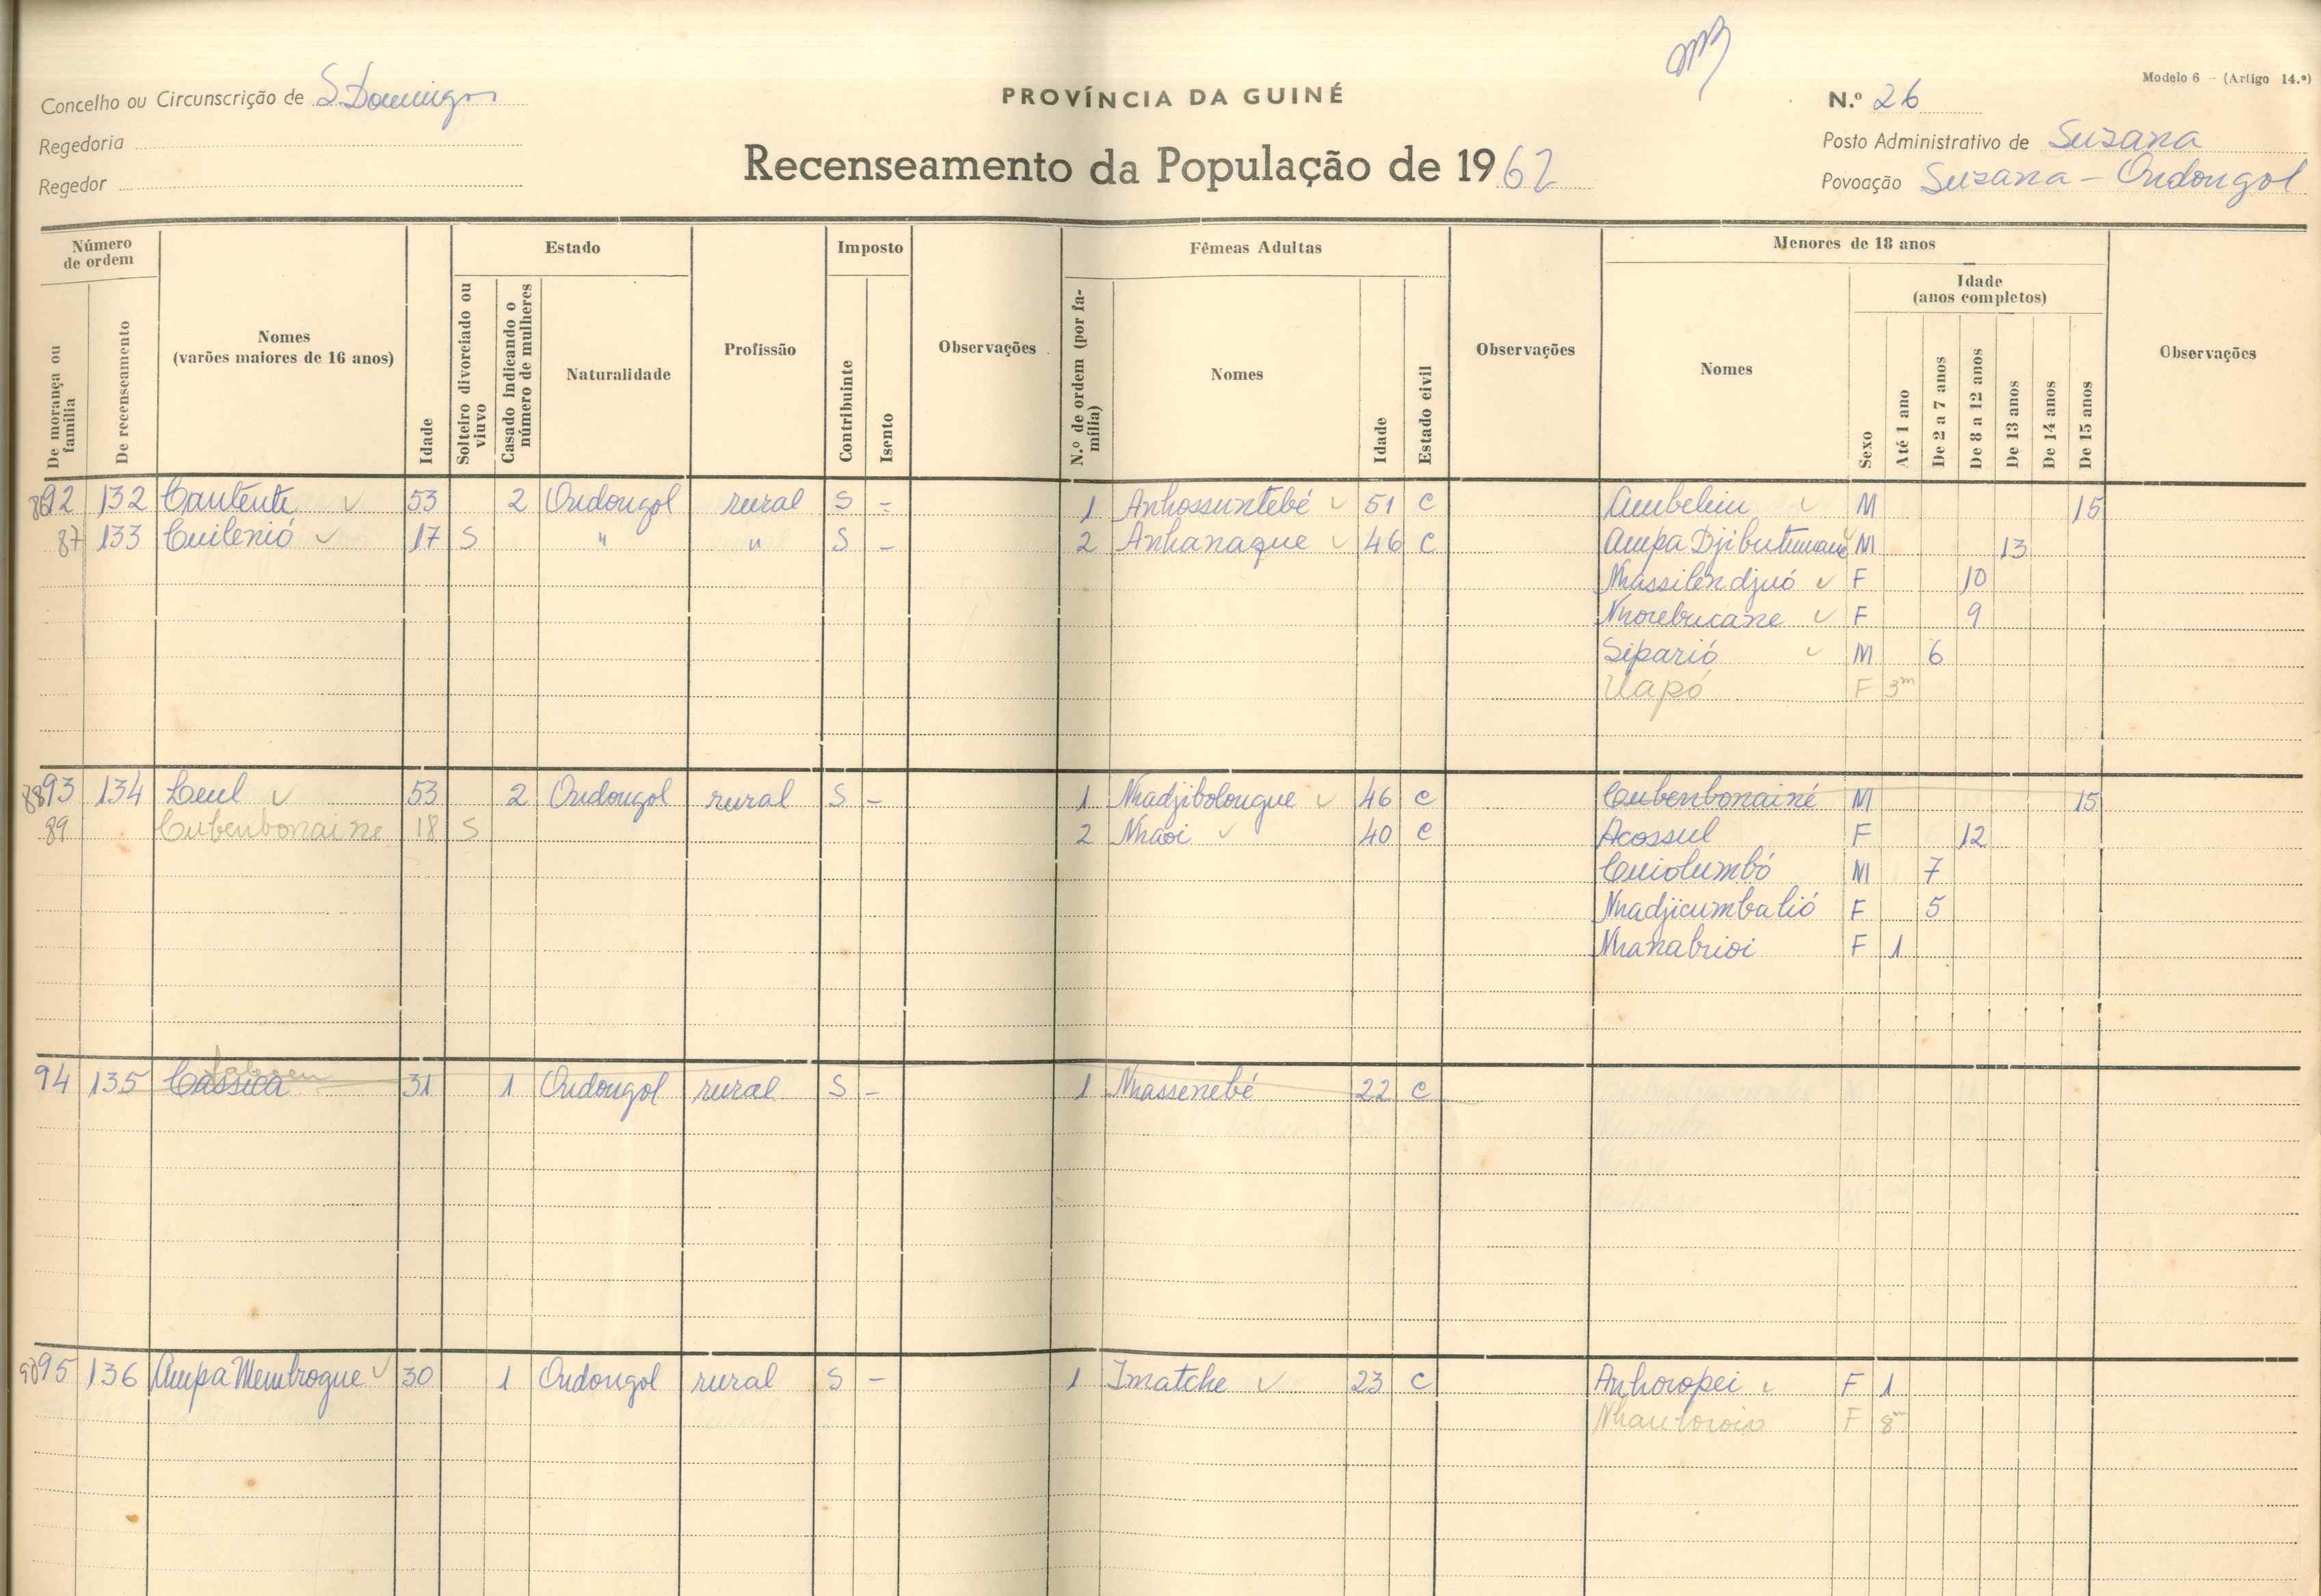 Modelo 6 - (Artigo 14.º)
Concelho ou Circunscrição de S. Domingos
PROVÍNCIA DA GUINÉ
N.º 26
Regedoria
Recenseamento da População de 1962
Posto Administrativo de Suzana
Regedor
Povoação Suzana - Ondongol
Número de ordem
De morança ou família
De recenseamento
Nomes
(varões maiores de 16 anos)
Idade
Estado
Solteiro divorciado ou viuvo
Casado indicando o número de mulheres
Naturalidade
Profissão
Imposto
Contribuinte
Isento
Observações
Fêmeas Adultas
N.º de ordem (por família)
Nomes
Idade
Estado civil
Observações
Menores de 18 anos
Nomes
Sexo
Idade
(anos completos)
Até 1 ano
De 2 a 7 anos
De 8 a 12 anos
De 13 anos
De 14 anos
De 15 anos
Observações
86 92 132 Cautente 53 2 Ondongol rural S - 1 Anhossuntebé 51 C Ambeleiu M 15
87 133 Cuilenió 17 S " " S - 2 Anhanaque 46 C Ampa Djibutumane M 13
Nhassilendjuó F 10
Nhorebucane F 9
Siparió M 6
Uapó F 3m
88 93 134 Ceul 53 2 Ondongol rural S - 1 Nhadjibolongue 46 C Cubenbonainé M 15
89 Cubenbonaine 18 S 2 Nhaoi 40 C Acossul F 12
Cuiolumbó M 7
Nhadjicumbalió F 5
Nhanabrioi F 1
94 135 Cassica 31 1 Ondongol rural S - 1 Nhassenebé 22 C
90 95 136 Ampa Membrogue 30 1 Ondongol rural S - 1 Imatche 23 C Anhoropei F 1
F 8m